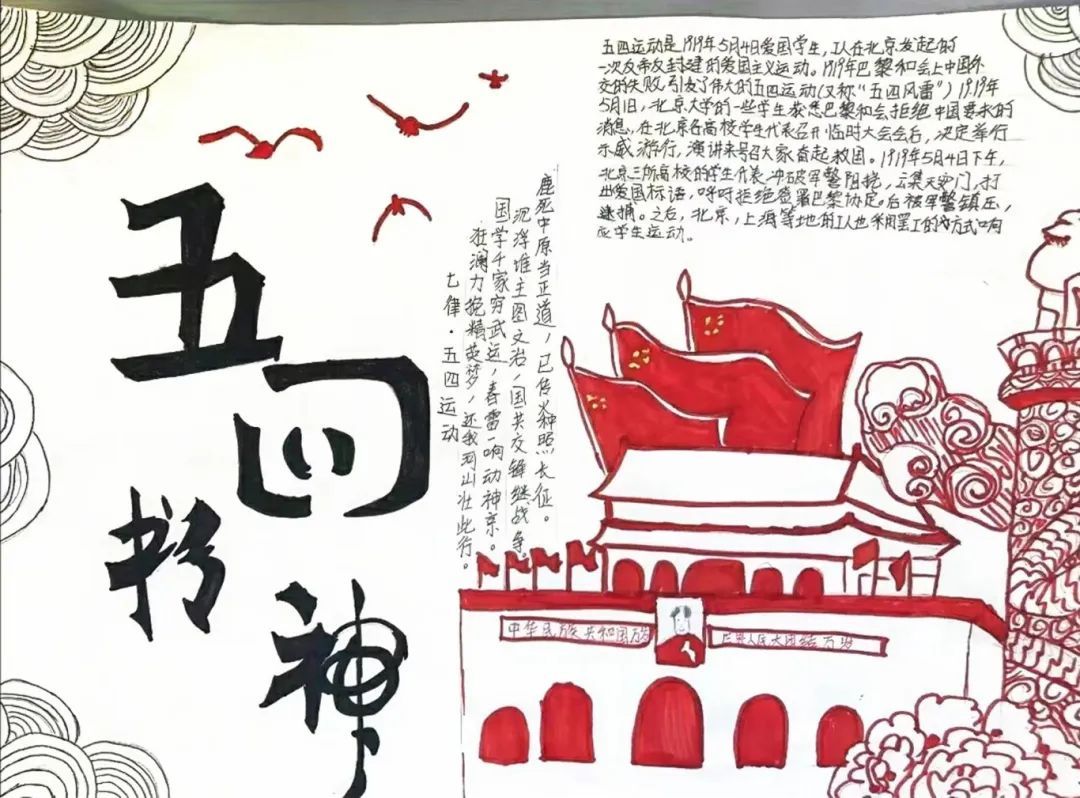 五四
精神
五四运动是1919年5月4日爱国学生,工人在北京发起的
一次反帝反封建的爱国主义运动。1919年巴黎和会上中国外
交的失败,引发了伟大的五四运动(又称“五四风雷”)1919年
5月1日,北京大学的一些学生获悉巴黎和会拒绝中国要求的
消息,在北京各高校学生代表召开临时大会会后,决定举行
示威游行,演讲来号召大家奋起救国。1919年5月4日下午,
北京三所高校的学生代表冲破军警阻挠,云集天安门,打
出爱国标语,呼吁拒绝签署巴黎协定。后被军警镇压,
逮捕。之后,北京,上海等地的工人也采用罢工的方式响
应学生运动。
七律·五四运动
狂澜力挽精英梦,还我河山壮此行。
国学千家穷武运,春雷一响动神京。
沉浮谁主图文治,国共交锋继战争。
鹿死中原当正道,已传火种照长征。
中华民族共和国万岁
人民大团结万岁